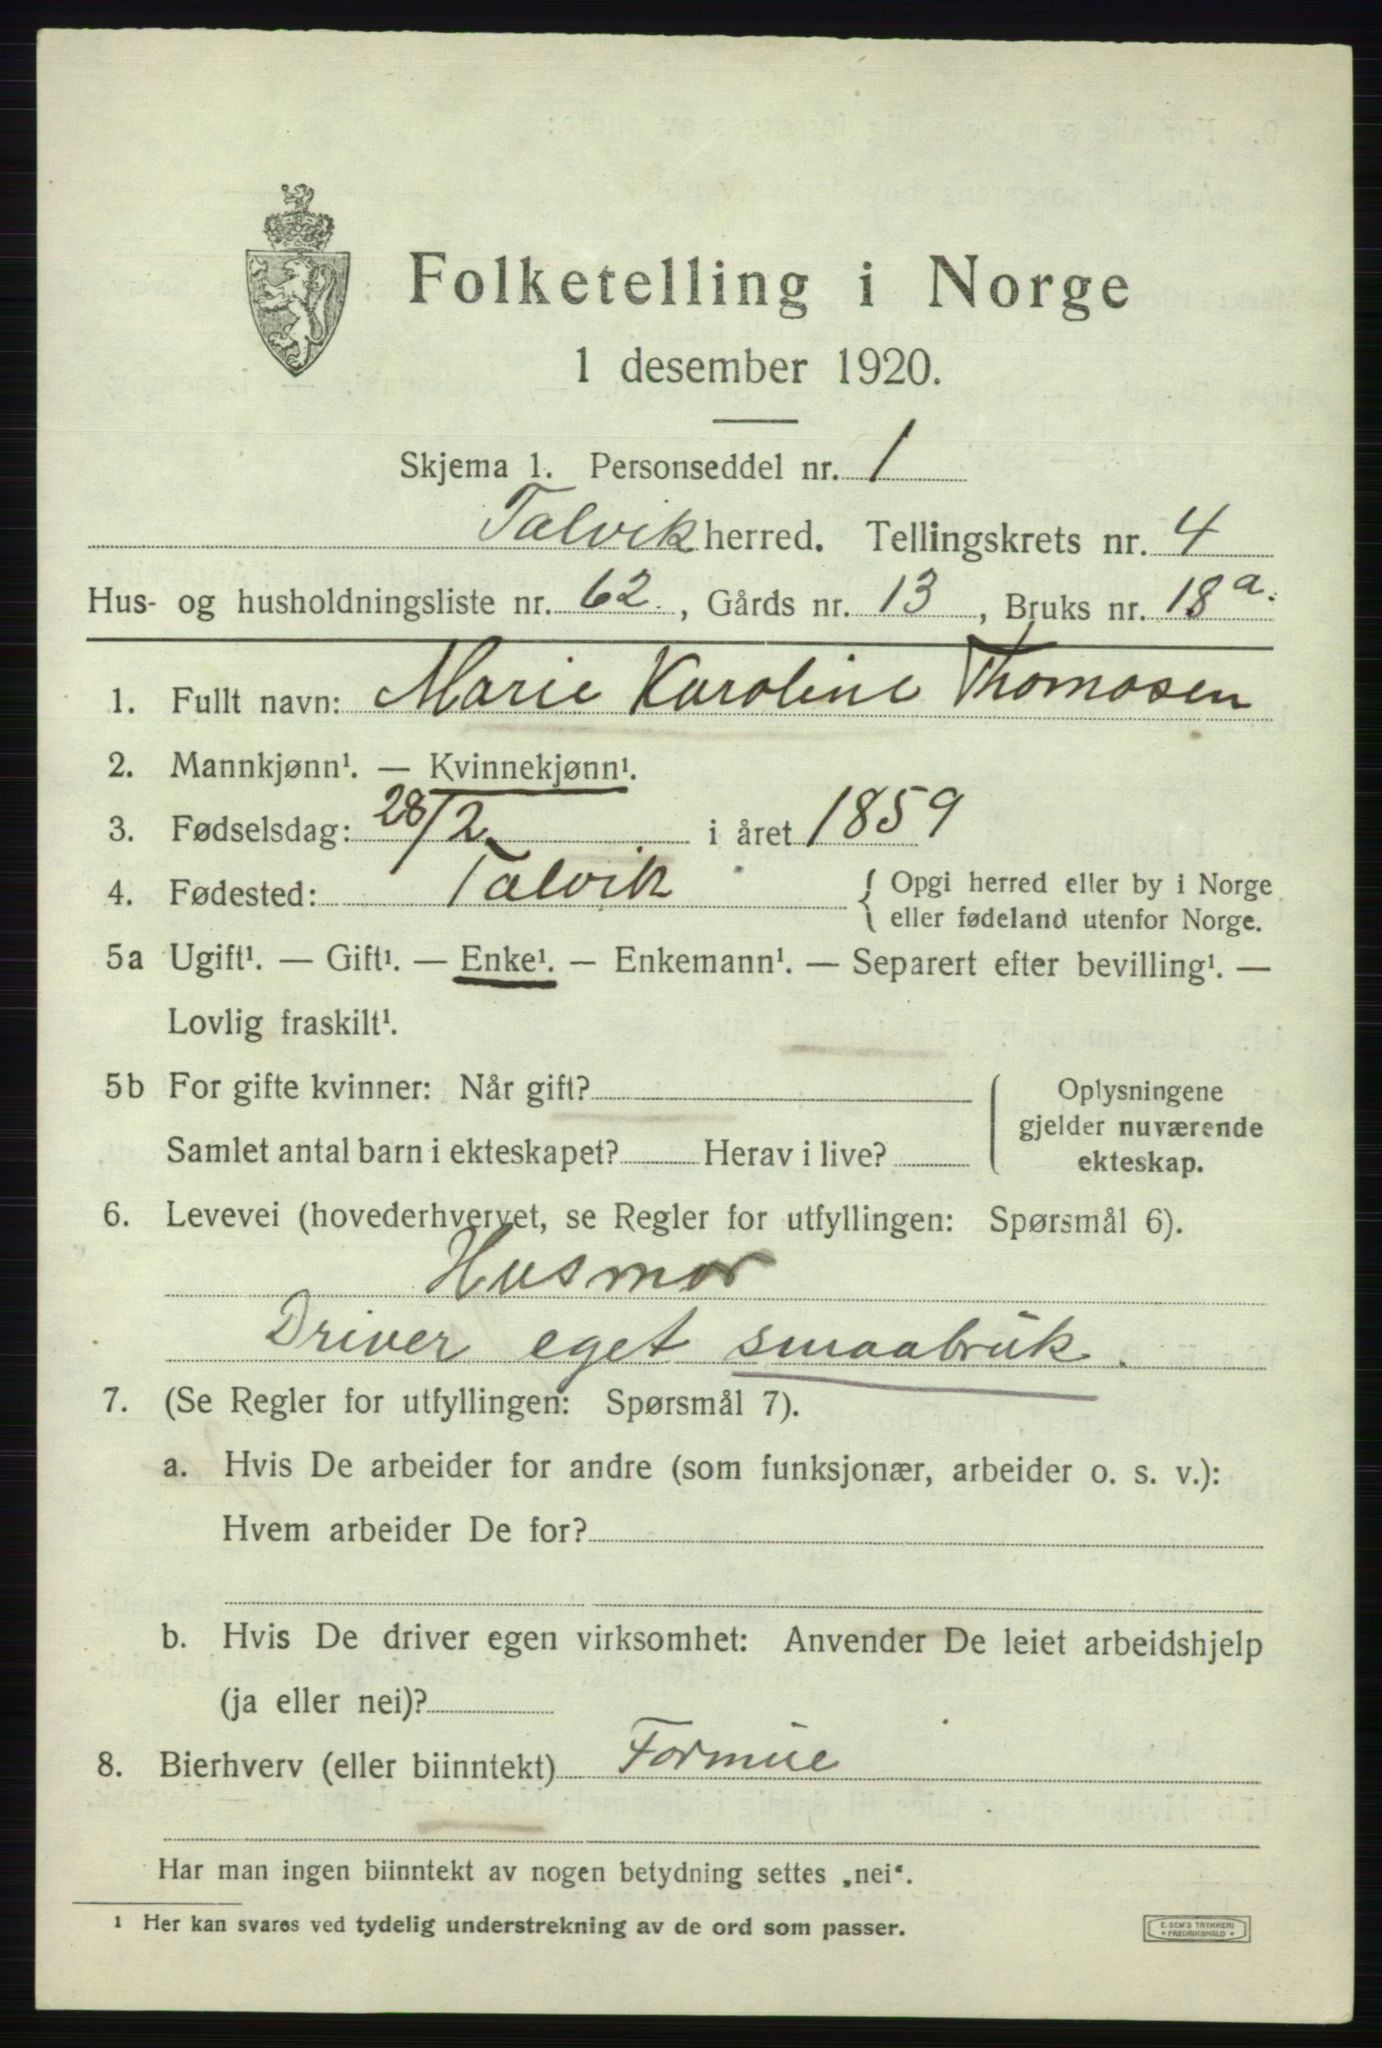 Folketelling i Norge
1 desember 1920.
Skjema 1. Personseddel nr. 1
Talvik herred. Tellingskrets nr. 4
Hus- og husholdningsliste nr. 62., Gårds nr. 13, Bruks nr. 18a.
1. Fullt navn: Marie Karoline Thomasen
2. Mannkjønn¹. — Kvinnekjønn¹.
3. Fødselsdag: 28/2 i året 1859
4. Fødested: Talvik { Opgi herred eller by i Norge
eller fødeland utenfor Norge.
5a Ugift¹. — Gift¹. — Enke¹. — Enkemann¹. — Separert efter bevilling¹. —
Lovlig fraskilt¹.
5b For gifte kvinner: Når gift?
Samlet antal barn i ekteskapet? Herav i live?
Oplysningene
gjelder nuværende
ekteskap.
6. Levevei (hovederhvervet, se Regler for utfyllingen: Spørsmål 6).
Husmor
Driver eget smaabruk.
7. (Se Regler for utfyllingen: Spørsmål 7).
a. Hvis De arbeider for andre (som funksjonær, arbeider o. s. v.):
Hvem arbeider De for?
b. Hvis De driver egen virksomhet: Anvender De leiet arbeidshjelp
(ja eller nei)?
8. Bierhverv (eller biinntekt) Formue
Har man ingen biinntekt av nogen betydning settes „nei“.
¹ Her kan svares ved tydelig understrekning av de ord som passer.
E. SEM'S TRYKKERI
* FREDRIKSHALD *